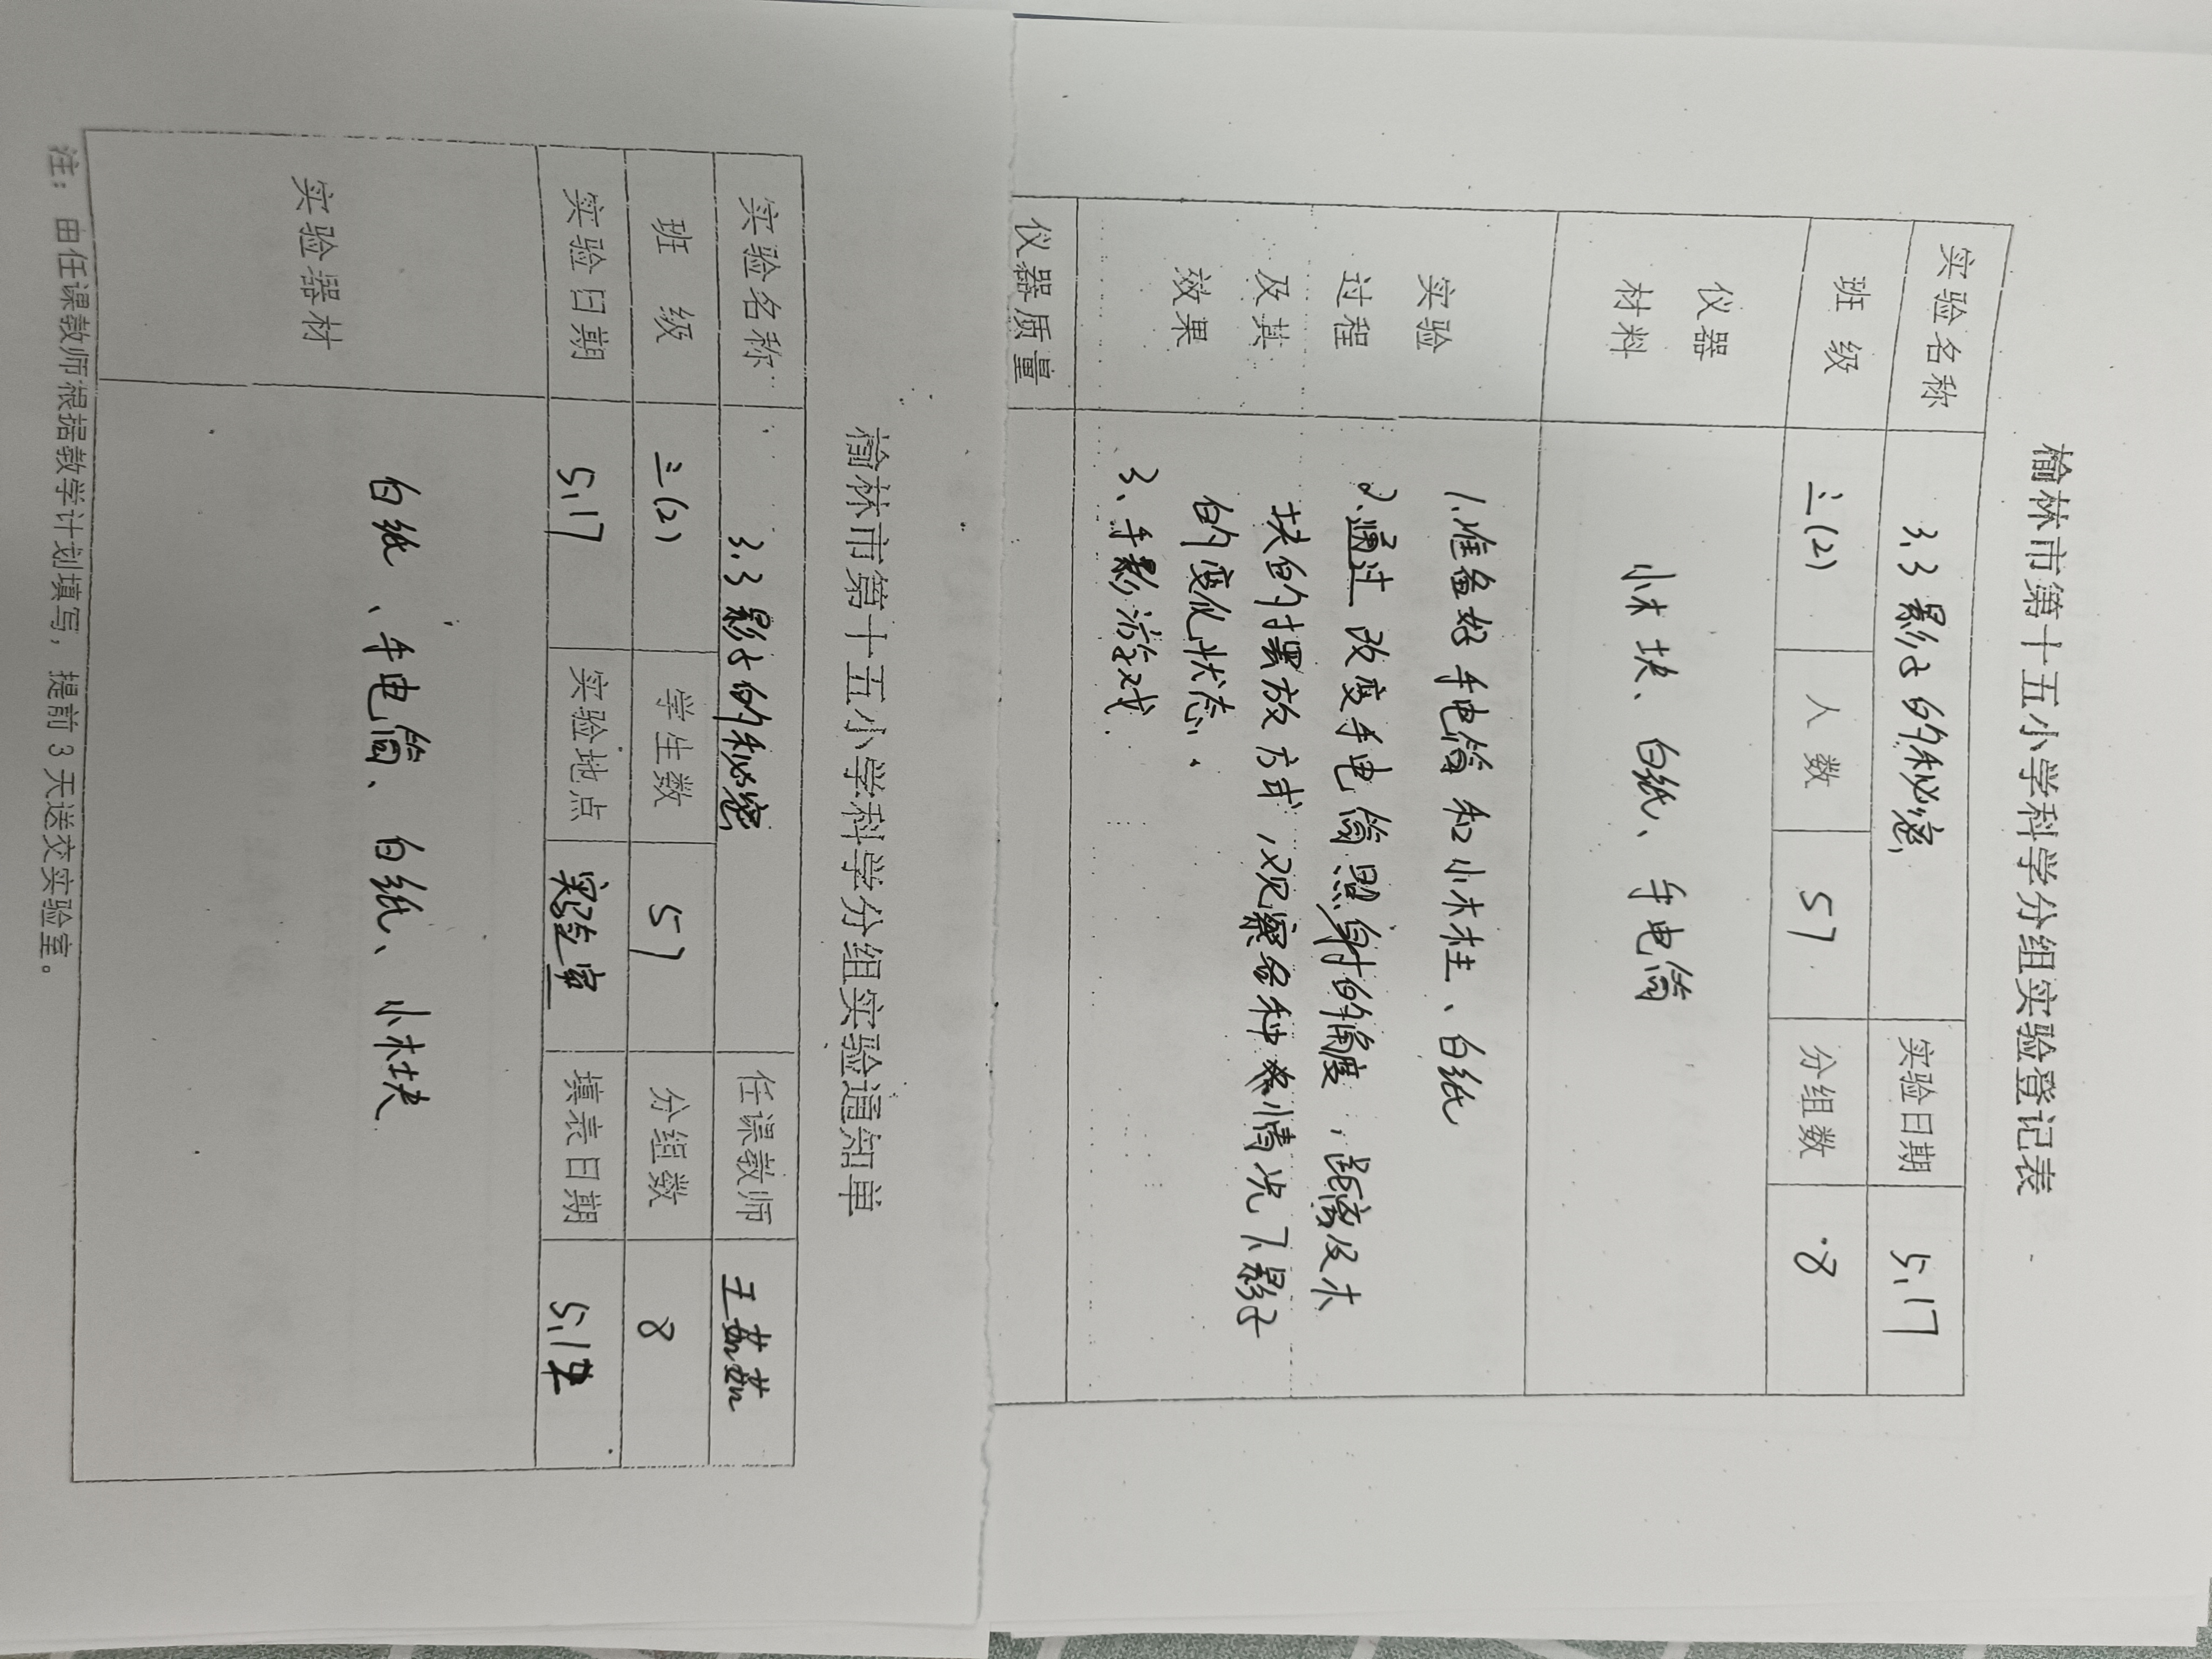 榆林市第十五小学科学分组实验登记表
实验名称 3.3影子的秘密 实验日期 5.17
班级 三(2) 人数 57 分组数 8
仪器
材料
小木块、白纸、手电筒
实验
过程
及其
效果
1.准备好手电筒和小木柱、白纸
2.通过改变手电筒照射的角度，距离及木
块的摆放方式，观察各种情况下影子
的变化状态.
3、手影游戏.
仪器质量
榆林市第十五小学科学分组实验通知单
实验名称 3.3影子的秘密 任课教师 王茹茹
班级 三(2) 学生数 57 分组数 8
实验日期 5.17 实验地点 实验室 填表日期
实验器材 白纸、手电筒、白纸、小木块
注：由任课教师根据教学计划填写，提前3天送交实验室。